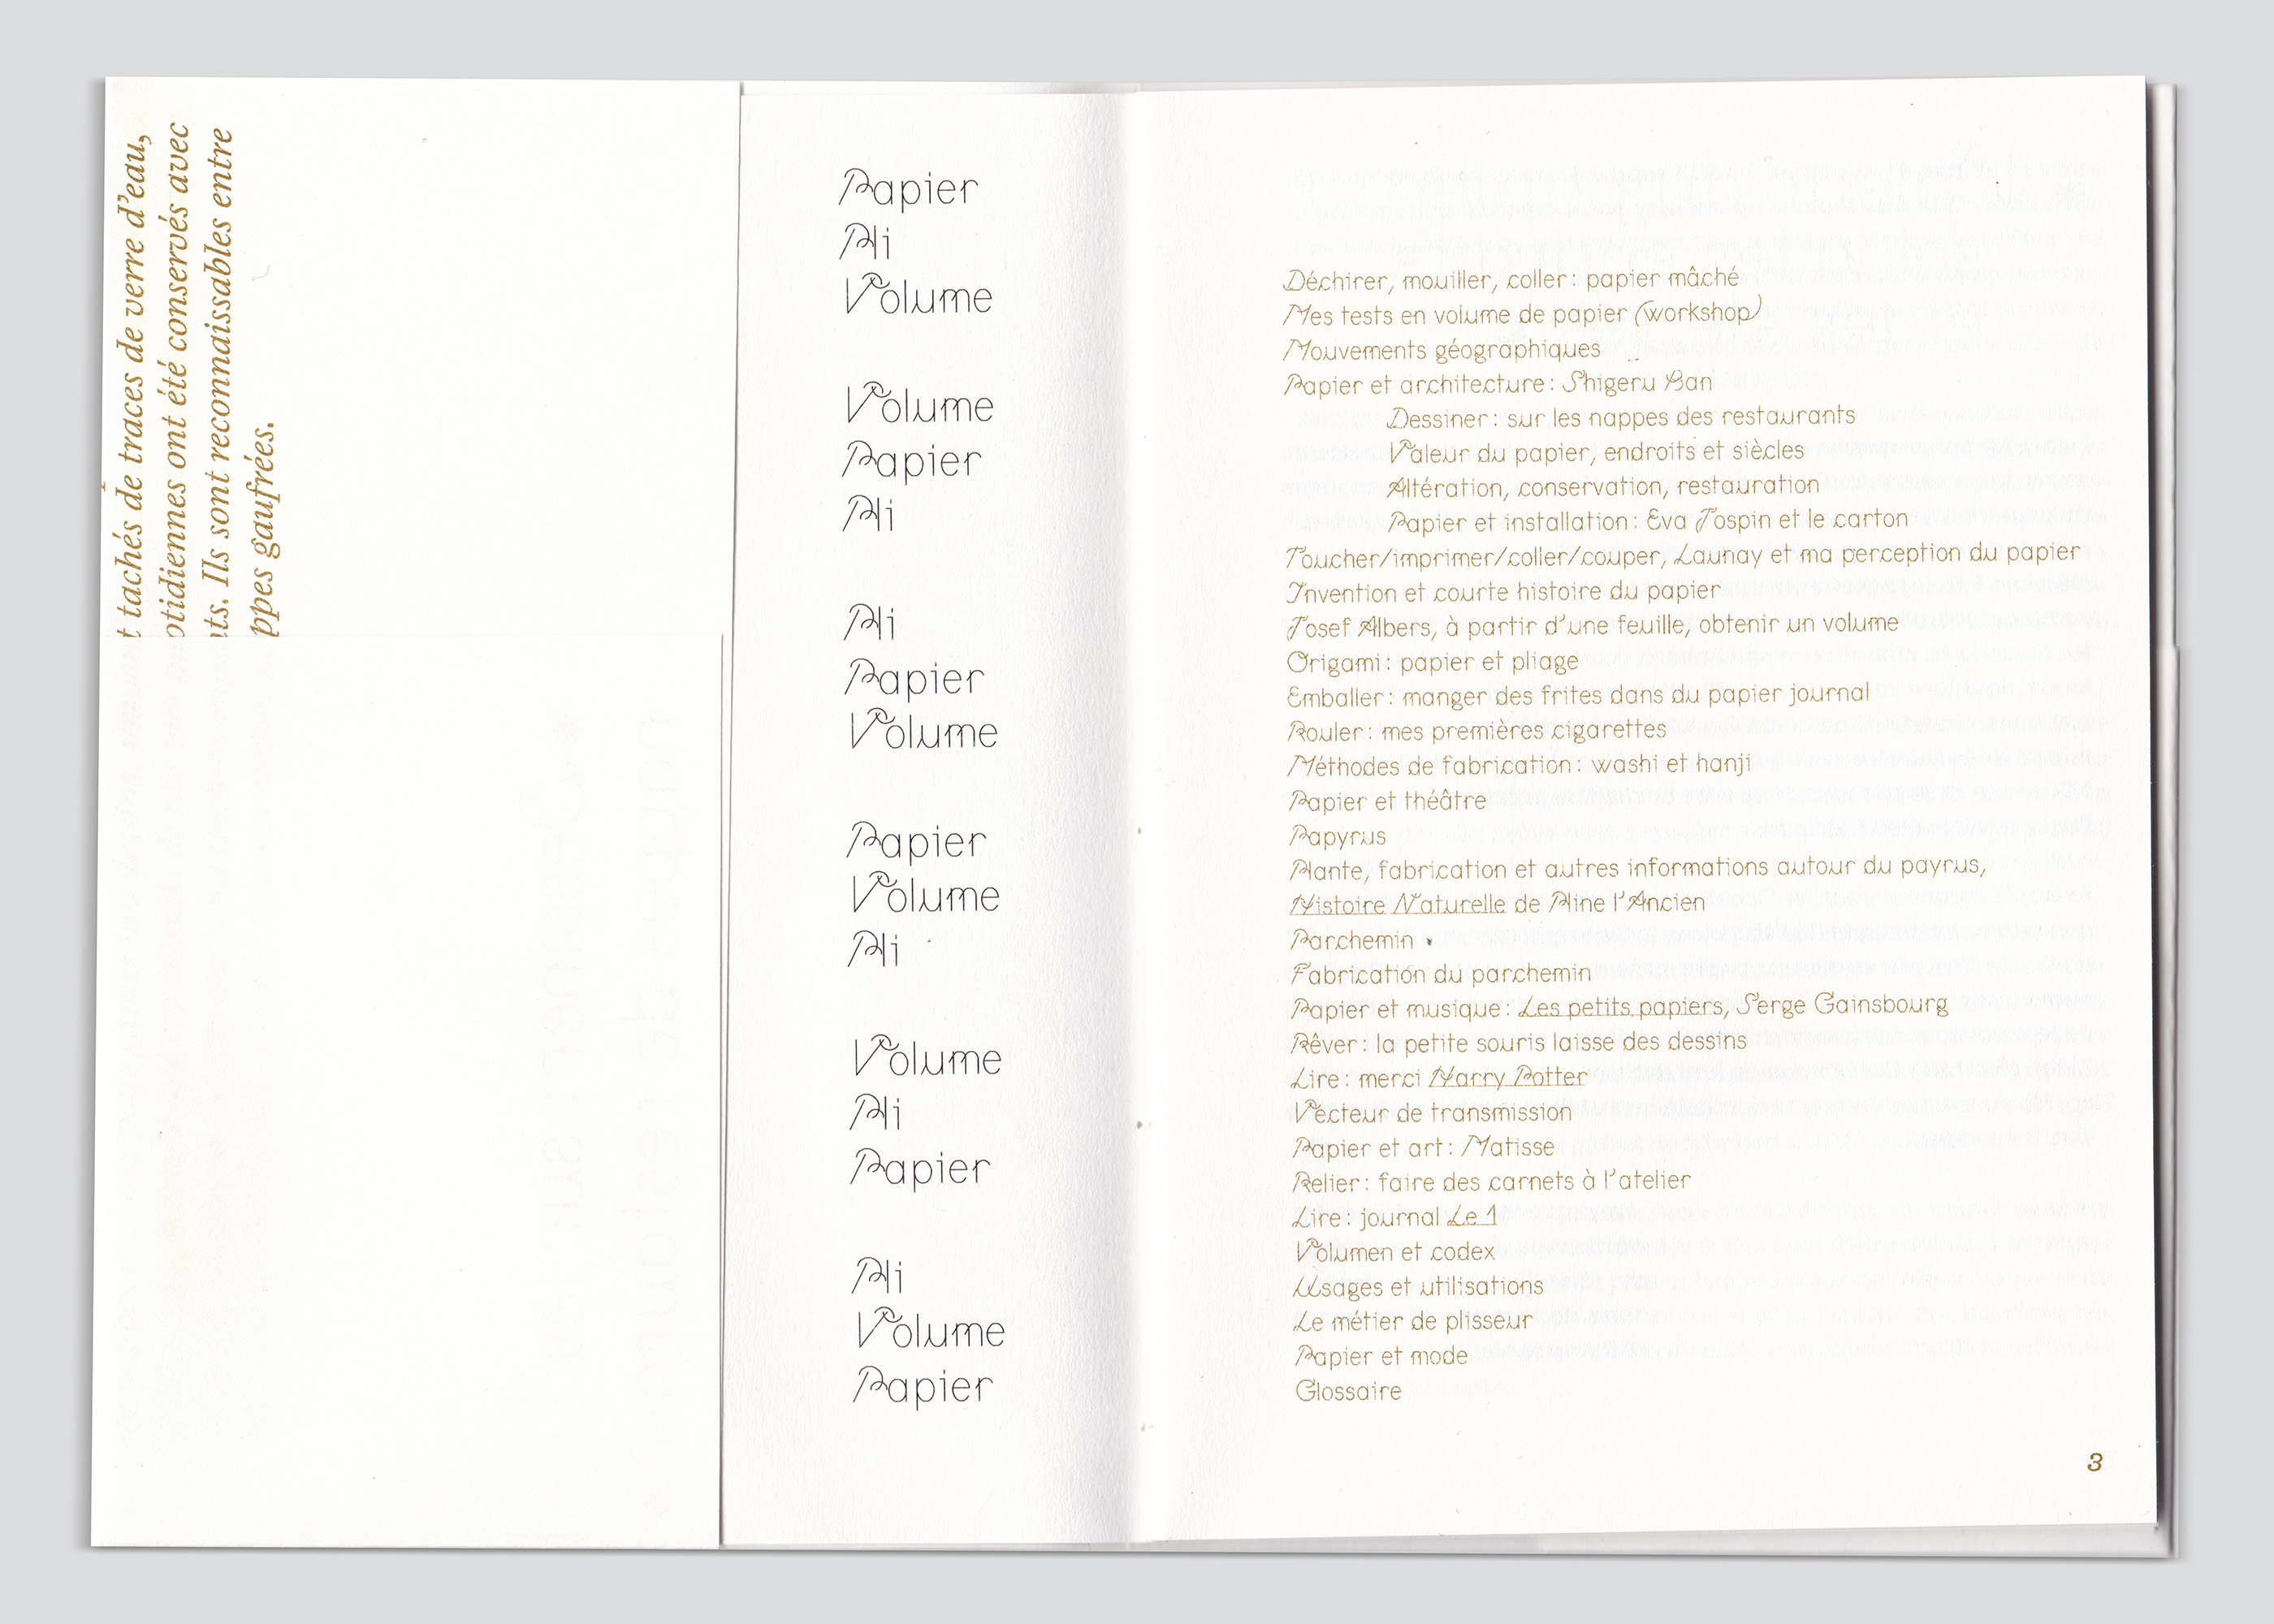 t tachés de traces de verre d'eau,
otidiennes ont été conservés avec
ts. Ils sont reconnaissables entre
ppes gaufrées.
Papier
Pli
Volume
Volume
Papier
Pli
Pli
Papier
Volume
Papier
Volume
Pli
Volume
Pli
Papier
Pli
Volume
Papier
Déchirer, mouiller, coller : papier mâché
Mes tests en volume de papier (workshop)
Mouvements géographiques
Papier et architecture : Shigeru Ban
Dessiner : sur les nappes des restaurants
Valeur du papier, endroits et siècles
Altération, conservation, restauration
Papier et installation : Eva Jospin et le carton
Toucher/imprimer/coller/couper, Launay et ma perception du papier
Invention et courte histoire du papier
Josef Albers, à partir d'une feuille, obtenir un volume
Origami : papier et pliage
Emballer : manger des frites dans du papier journal
Rouler : mes premières cigarettes
Méthodes de fabrication : washi et hanji
Papier et théâtre
Papyrus
Plante, fabrication et autres informations autour du payrus,
Histoire Naturelle de Pline l'Ancien
Parchemin
Fabrication du parchemin
Papier et musique : Les petits papiers, Serge Gainsbourg
Rêver : la petite souris laisse des dessins
Lire : merci Harry Potter
Vecteur de transmission
Papier et art : Matisse
Relier : faire des carnets à l'atelier
Lire : journal Le 1
Volumen et codex
Usages et utilisations
Le métier de plisseur
Papier et mode
Glossaire
3